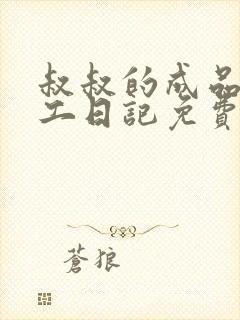 叔叔的成品
工日記免費
蒼狼